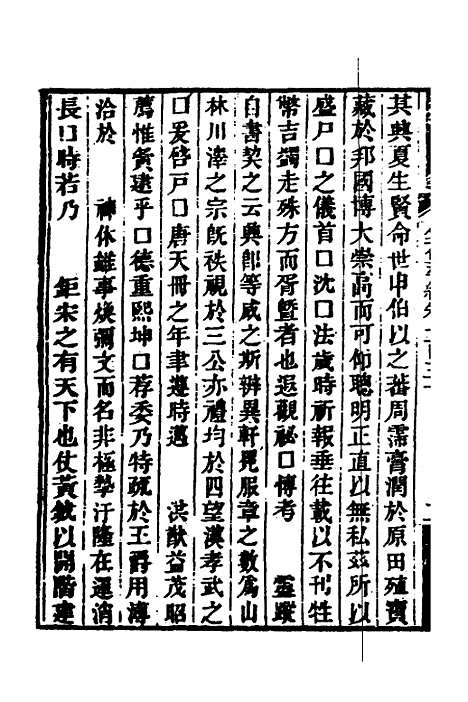 其典夏生賢命世申伯以之蕃周濡膏潤於原田殖寶
藏於邦國博大崇高而可仰聰明正直以無私茲所以
盛尸口之儀首口沈口法歲時祈報垂往載以不刊牲
幣吉蠲走殊方而胥曁者也遐觀祕口愽考　　靈蹤
自書契之云典郎等威之斯辨異軒冕服章之數爲山
林川澤之宗旣秩視於三公亦禮均於四望漢孝武之
口爰啓戸口唐天冊之年聿遵時邁　　洪猷益茂昭
薦惟寅建乎口德重熙坤口荐委乃特疏於王爵用溥
洽於　　神休雖事煥彌文而名非極摯汙隆在運消
長口時若乃　　鉅宋之有天下也仗黃鉞以開階建